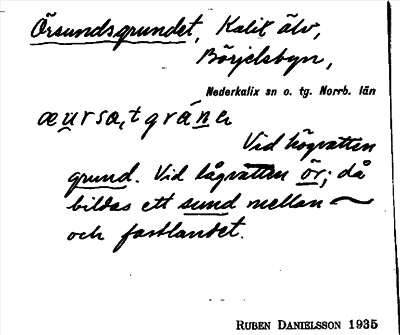 Örsundsgrundet, Kalix älv,
Börjelsbyn,
Nederkalix sn o. tg. Norrb. län
Vid högvatten
grund. Vid lågvatten ör; då
bildas ett sund mellan ~
och fastlandet.
RUBEN DANIELSSON 1935